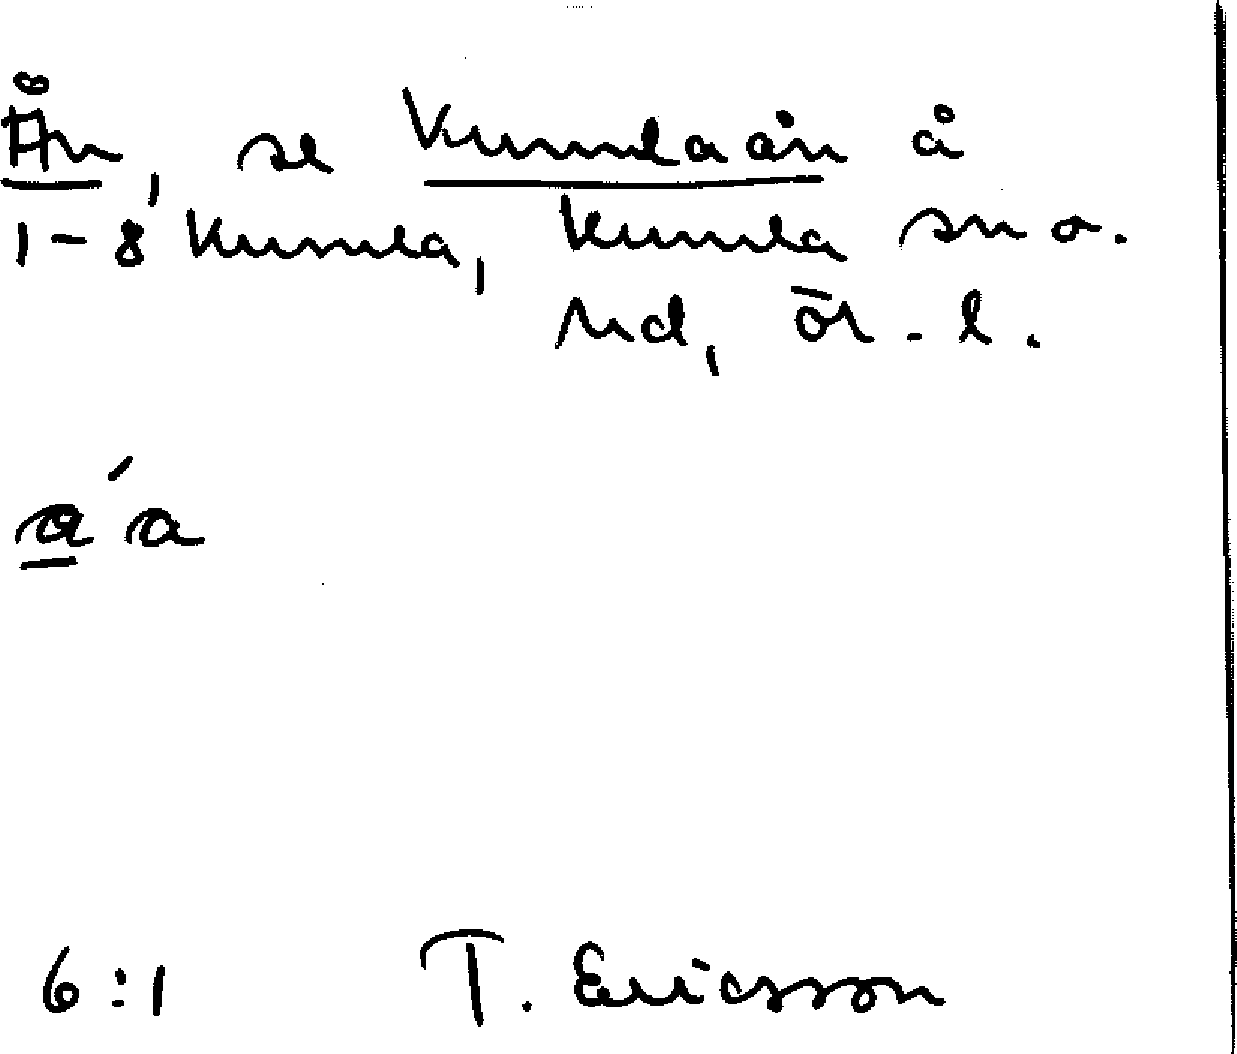 Ån, se Kumlaån å
1-8 Kumla, Kumla sn o.
hd, ör. l.
a´a
6:1 T. Ericsson